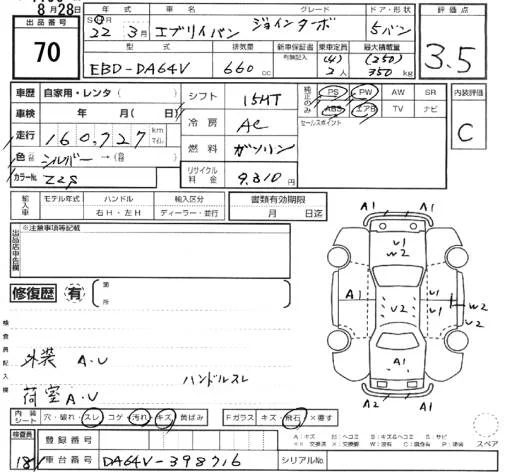 8月28日
出品番号
70
年式 車名 グレード ドア・形状 評価点
SH 22 3月 エブリイバン ジョインターボ 5バン 3.5
型式 排気量 新車保証書 乗車定員 最大積載量
有無記入 (4) (250)
EBD-DA64V 660cc 2人 350kg
車歴 自家用・レンタ( )
車検 年 月( 日)
走行 160,727 km マイル
色 シルバー →(
カラーNo. Z2S
シフト 15MT
冷房 AC
燃料 ガソリン
リサイクル料金 9,310円
純正のみ PS PW AW SR
ABS エアB TV ナビ
セールスポイント
内装評価
C
輸入車 モデル年式 ハンドル 輸入区分
右H・左H ディーラー・並行
書類有効期限
月 日迄
出品店申告欄
※注意事項等記載
修復歴 有
箇所
検査員記入欄
外装 A.U
ハンドルスレ
荷室 A.U
A1 A1
U1
W2
A1 U1 U2 U1 W2
U2
A1
A2 A1
内装シート 穴・破れ・スレ コゲ・汚れ・キズ 黄ばみ
Fガラス キズ・飛石 ×要す
スペア
検査員
181
登録番号
車台番号 DA64V-398716
シリアルNo.